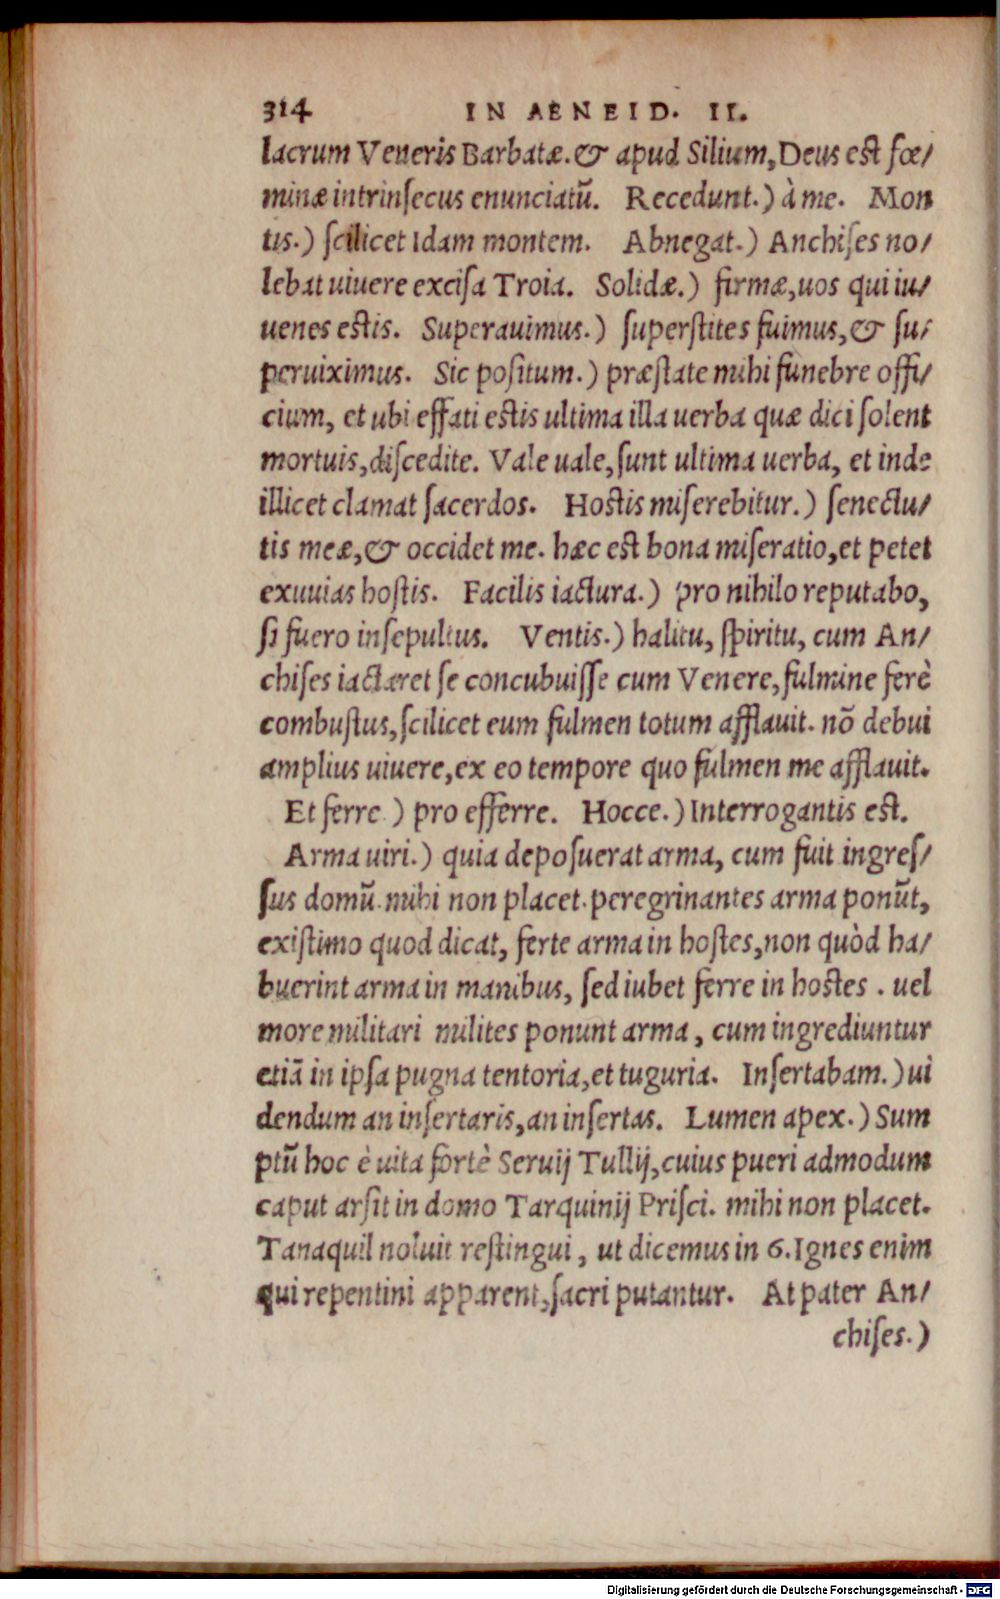 314 IN AENEID. II.
lacrum Veneris Barbatæ. & apud Silium, Deus est fœ/
minæ intrinsecus enunciatū. Recedunt.) à me. Mon
tis.) scilicet Idam montem. Abnegat.) Anchises no/
lebat uiuere excisa Troia. Solidæ.) firmæ, uos qui iu/
uenes estis. Superauimus.) superstites fuimus, & su/
peruiximus. Sic positum.) præstate mihi funebre offi/
cium, et ubi effati estis ultima illa uerba quæ dici solent
mortuis, discedite. Vale uale, sunt ultima uerba, et inde
illicet clamat sacerdos. Hostis miserebitur.) senectu/
tis meæ, & occidet me. hæc est bona miseratio, et petet
exuuias hostis. Facilis iactura.) pro nihilo reputabo,
si fuero insepultus. Ventis.) halitu, spiritu, cum An/
chises iactaret se concubuisse cum Venere, fulmine ferè
combustus, scilicet eum fulmen totum afflauit. nō debui
amplius uiuere, ex eo tempore quo fulmen me afflauit.
Et ferre.) pro efferre. Hocce.) Interrogantis est.
Arma uiri.) quia deposuerat arma, cum fuit ingres/
sus domū. mihi non placet. peregrinantes arma ponūt,
existimo quod dicat, ferte arma in hostes, non quòd ha/
buerint arma in manibus, sed iubet ferre in hostes. uel
more militari milites ponunt arma, cum ingrediuntur
etiā in ipsa pugna tentoria, et tuguria. Insertabam.) ui
dendum an insertaris, an insertas. Lumen apex.) Sum
ptū hoc è uita fortè Seruij Tullij, cuius pueri admodum
caput arsit in domo Tarquinij Prisci. mihi non placet.
Tanaquil noluit restingui, ut dicemus in 6. Ignes enim
qui repentini apparent, sacri putantur. At pater An/
chises.)
Digitalisierung gefördert durch die Deutsche Forschungsgemeinschaft - DFG